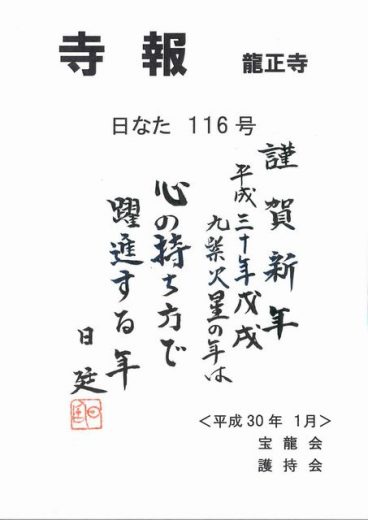 寺報 龍正寺
日なた 116号
謹賀新年
平成三十年戊戌
九紫火星の年は
心の持ち方で
躍進する年
日延
<平成30年 1月>
宝龍会
護持会